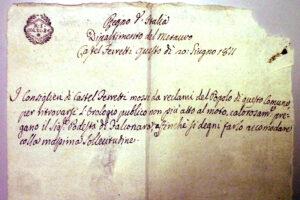 Regno d'Italia
Dipartimento del Metauro
Castel Ferretti questo dì 20: Giugno 1811
I Consiglieri di Castel Ferretti mossi da reclami del Popolo di questo Comune,
per ritrovarsi l'Orologio publico non più atto al moto, calorosam.e pre-
gano il Sig.r Podestà di Falconara, affinchè si degni farlo accomodare
colla massima Sollecitudine.